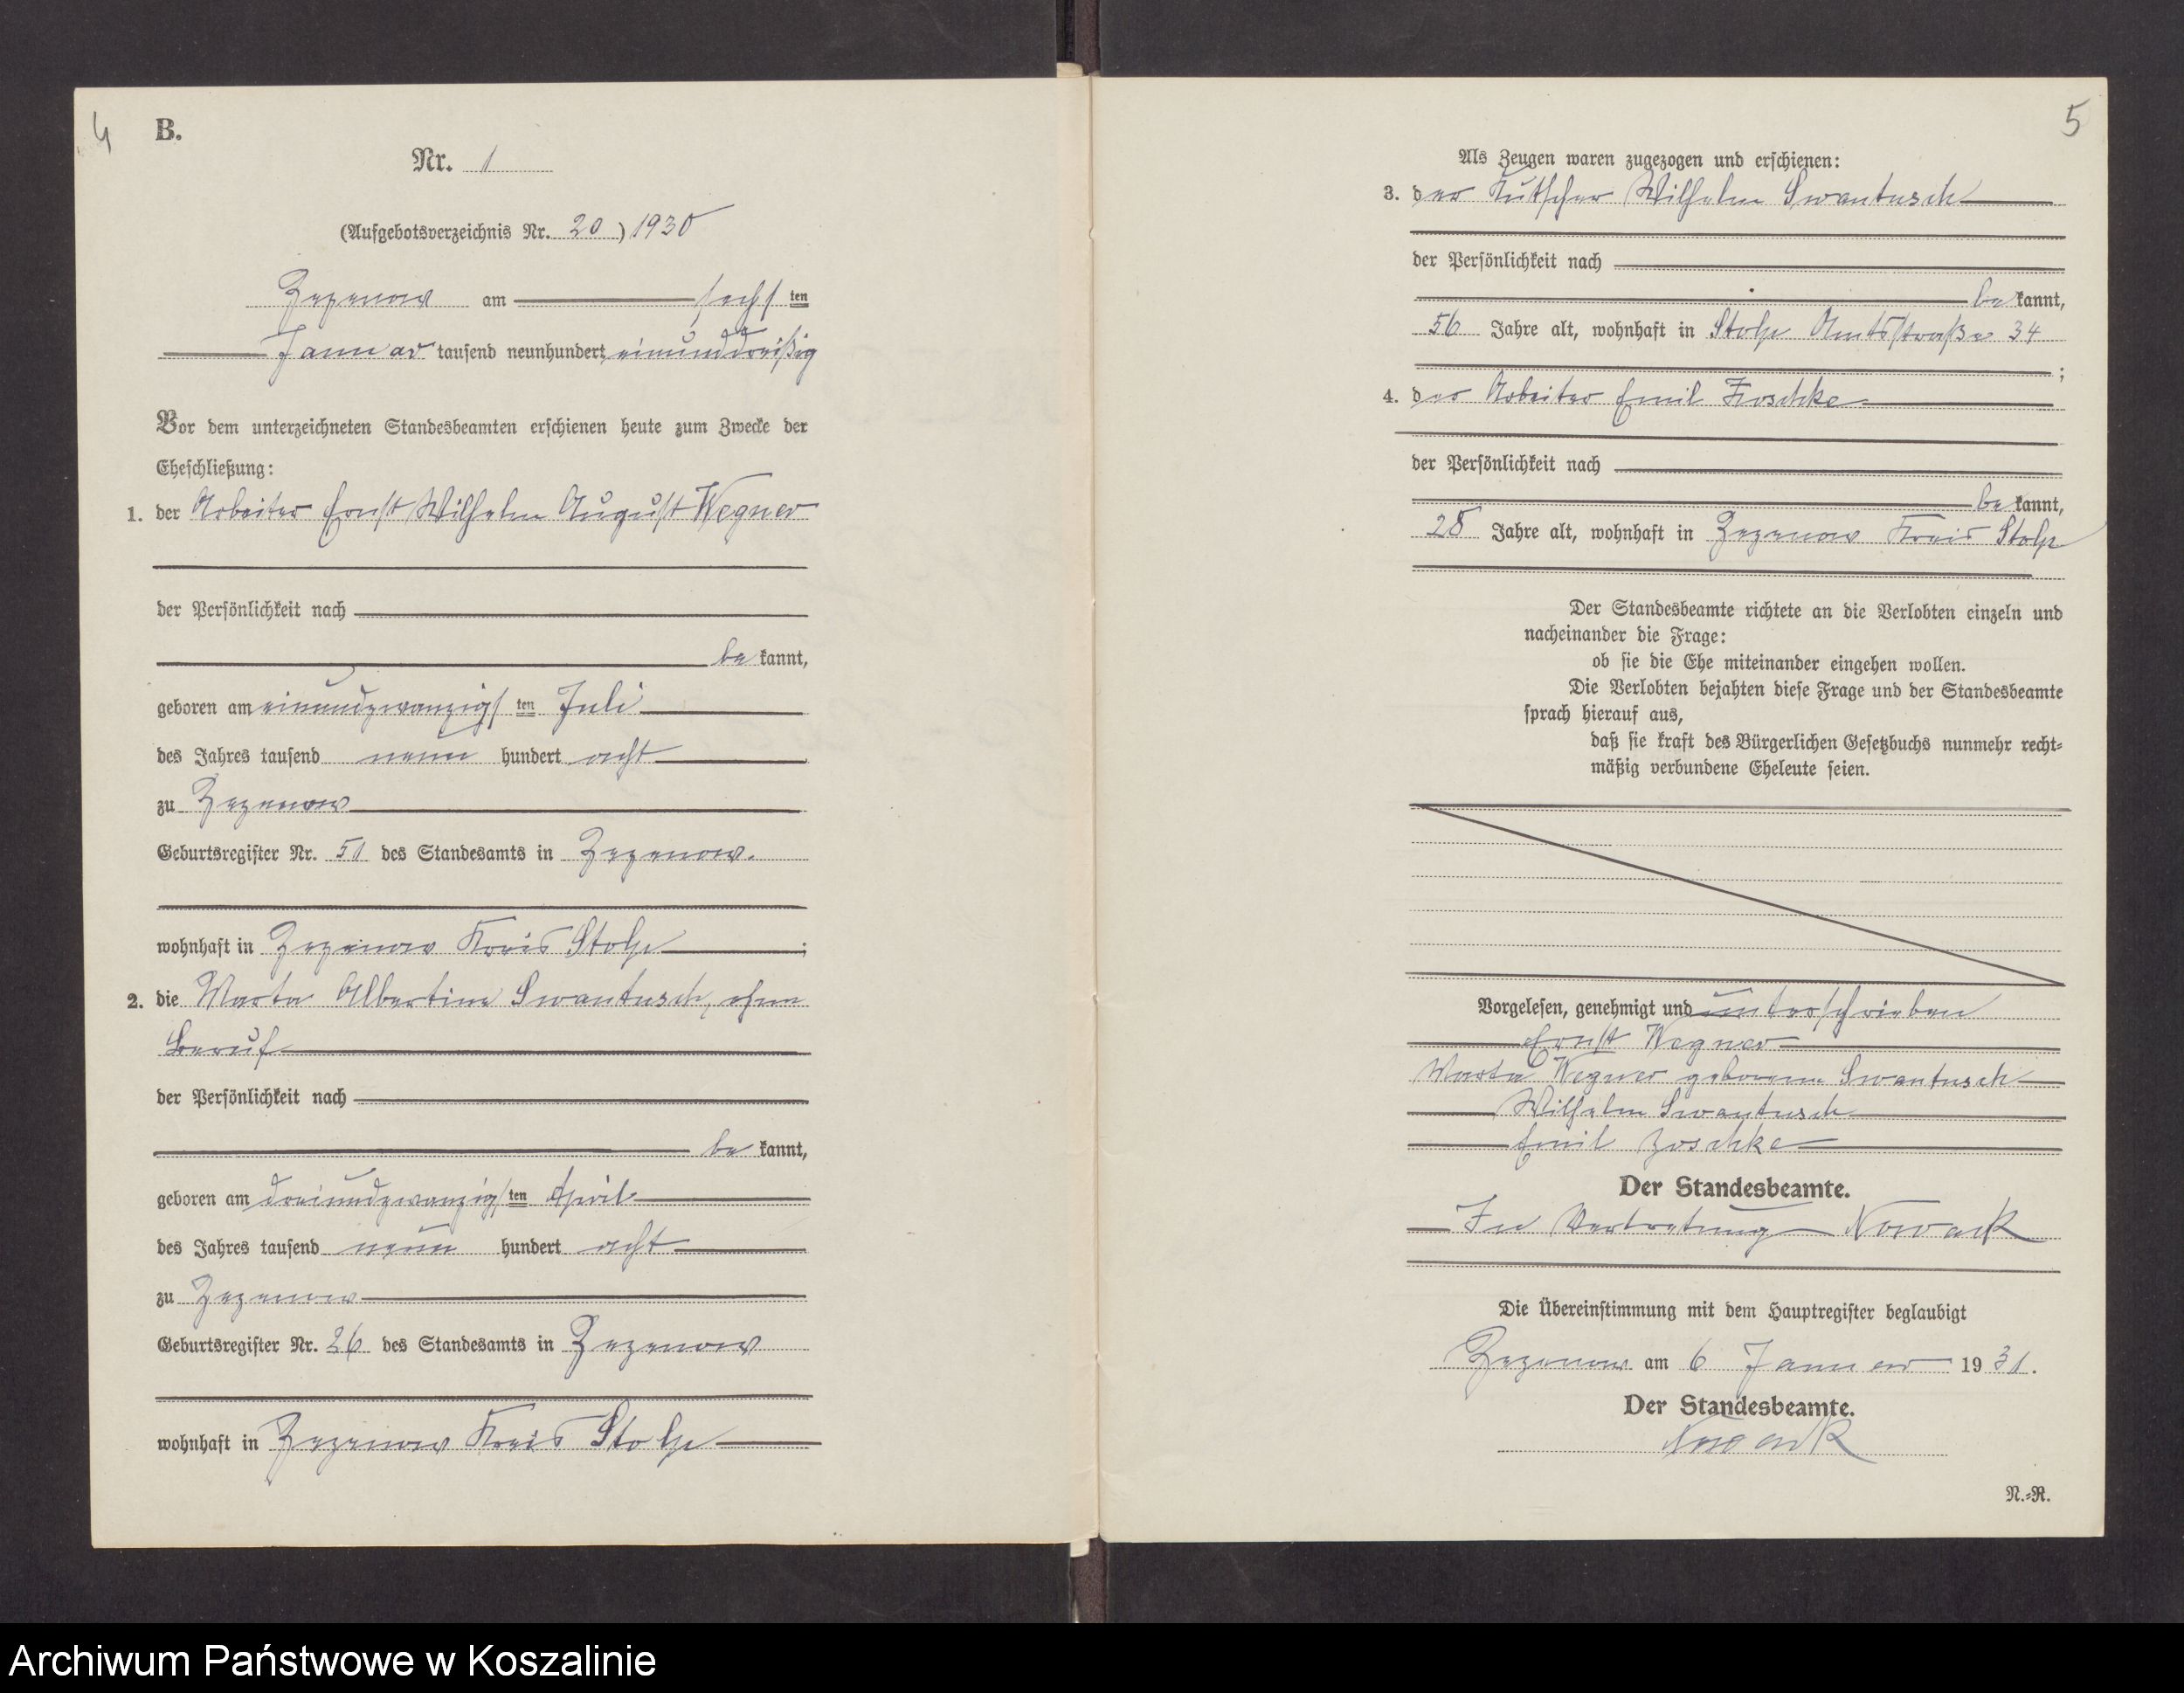 4
B.
Nr. 1
(Aufgebotsverzeichnis Nr. 20) 1930
Zezenow am sechsten
Januar tausend neunhundert einunddreißig
Vor dem unterzeichneten Standesbeamten erschienen heute zum Zwecke der
Eheschließung:
1. der Arbeiter Ernst Wilhelm August Wegner
der Persönlichkeit nach
bekannt,
geboren am einundzwanzigsten Juli
des Jahres tausend neun hundert acht
zu Zezenow
Geburtsregister Nr. 51 des Standesamts in Zezenow.
wohnhaft in Zezenow Kreis Stolp;
2. die Marta Albertine Swantusch, ohne
Beruf
der Persönlichkeit nach
bekannt,
geboren am dreiundzwanzigsten April
des Jahres tausend neun hundert acht
zu Zezenow
Geburtsregister Nr. 26 des Standesamts in Zezenow
wohnhaft in Zezenow Kreis Stolp
5
Als Zeugen waren zugezogen und erschienen:
3. der Kutscher Wilhelm Swantusch
der Persönlichkeit nach
bekannt,
56 Jahre alt, wohnhaft in Stolp Amtsstraße 34
;
4. der Arbeiter Emil
der Persönlichkeit nach
bekannt,
28 Jahre alt, wohnhaft in Zezenow Kreis Stolp
Der Standesbeamte richtete an die Verlobten einzeln und
nacheinander die Frage:
ob sie die Ehe miteinander eingehen wollen.
Die Verlobten bejahten diese Frage und der Standesbeamte
sprach hierauf aus,
daß sie kraft des Bürgerlichen Gesetzbuchs nunmehr recht-
mäßig verbundene Eheleute seien.
Vorgelesen, genehmigt und unterschrieben
Ernst Wegner
Marta Wegner geborene Swantusch
Wilhelm Swantusch
Emil Zoschke
Der Standesbeamte.
In Vertretung Nowack
Die Übereinstimmung mit dem Hauptregister beglaubigt
Zezenow am 6 Januar 1931.
Der Standesbeamte.
Nowack
N.-R.
Archiwum Państwowe w Koszalinie